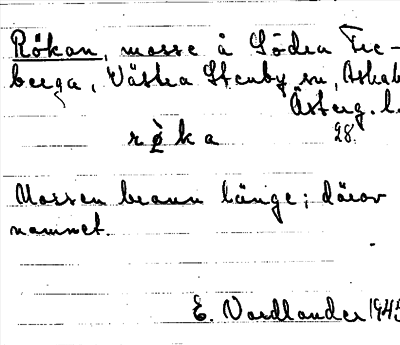 Rökan, mosse å Södra Fre-
berga, Västra Stenby sn, Askab
Österg. l.
rø̀ka 28.
Mossen brann länge; därav
namnet.
E. Nordlander 1945